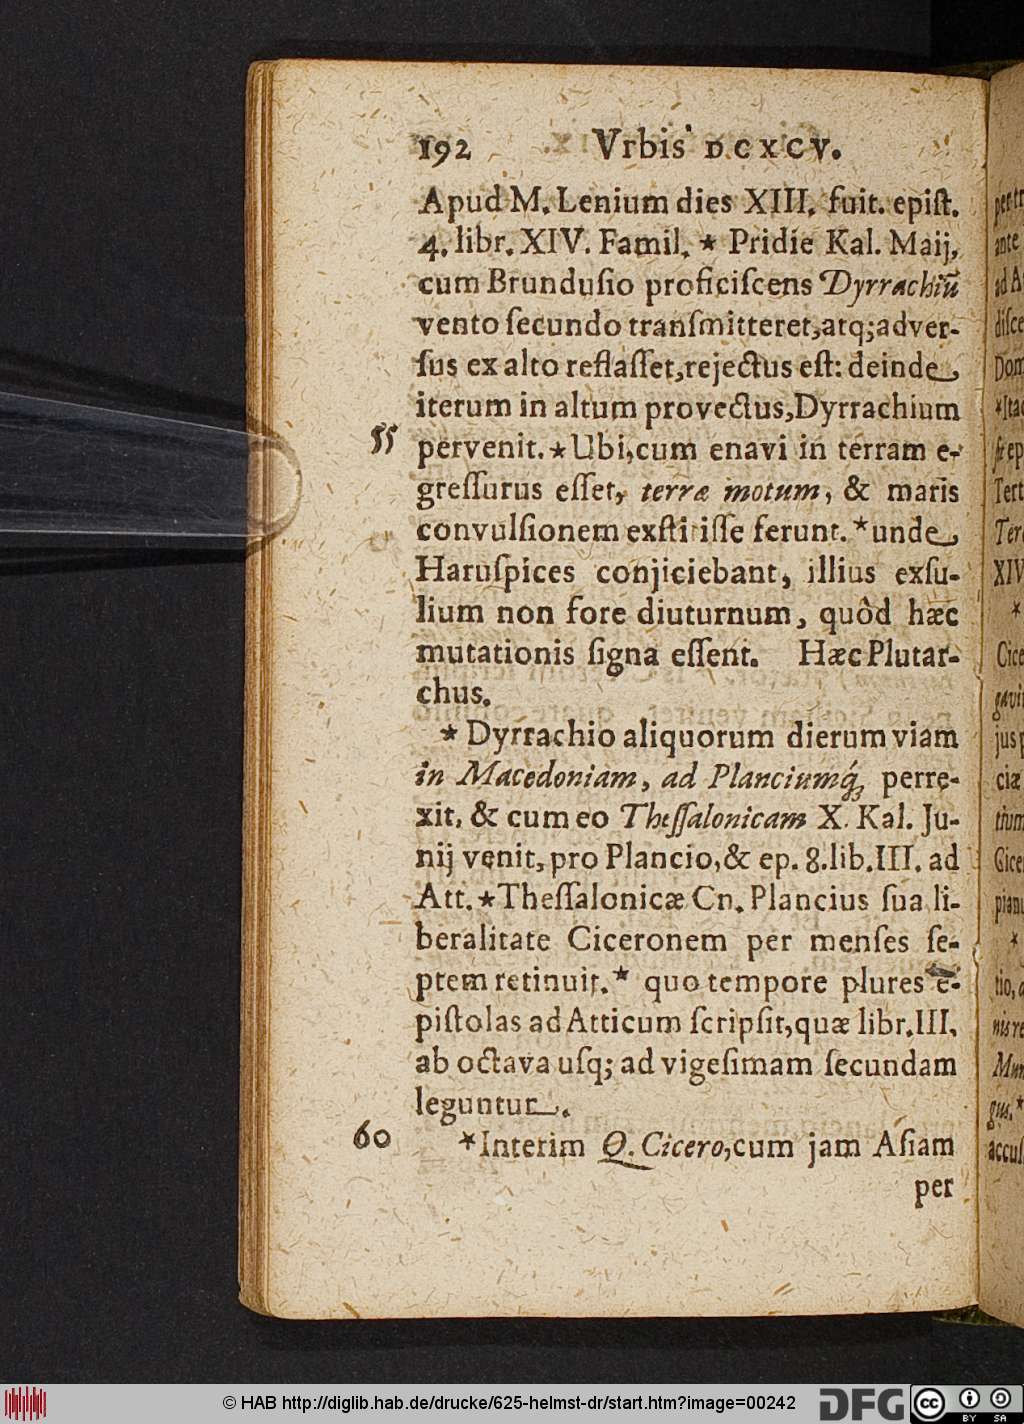 192 Vrbis DCXCV.
Apud M. Lenium dies XIII. fuit. epiſt.
4. libr. XIV. Famil. * Pridie Kal. Maij,
cum Brunduſio proficiſcens Dyrrachiũ
vento ſecundo tranſmitteret, atq; adver-
ſus ex alto reflaſſet, rejectus eſt: deinde
iterum in altum provectus, Dyrrachium
55 pervenit. * Ubi, cum enavi in terram e-
greſſurus eſſet, terræ motum, & maris
convulſionem exſtitiſſe ferunt. * unde
Haruſpices conjiciebant, illius exſu-
lium non fore diuturnum, quòd hæc
mutationis ſigna eſſent. Hæc Plutar-
chus.
* Dyrrachio aliquorum dierum viam
in Macedoniam, ad Planciumq́; perre-
xit, & cum eo Theſſalonicam X. Kal. Ju-
nij venit, pro Plancio, & ep. 8. lib. III. ad
Att. * Theſſalonicæ Cn. Plancius ſua li-
beralitate Ciceronem per menſes ſe-
ptem retinuit. * quo tempore plures e-
piſtolas ad Atticum ſcripſit, quæ libr. III.
ab octava uſq; ad vigeſimam ſecundam
leguntur.
60 * Interim Q. Cicero, cum jam Aſiam
per
© HAB http://diglib.hab.de/drucke/625-helmst-dr/start.htm?image=00242
DFG
cc
BY SA